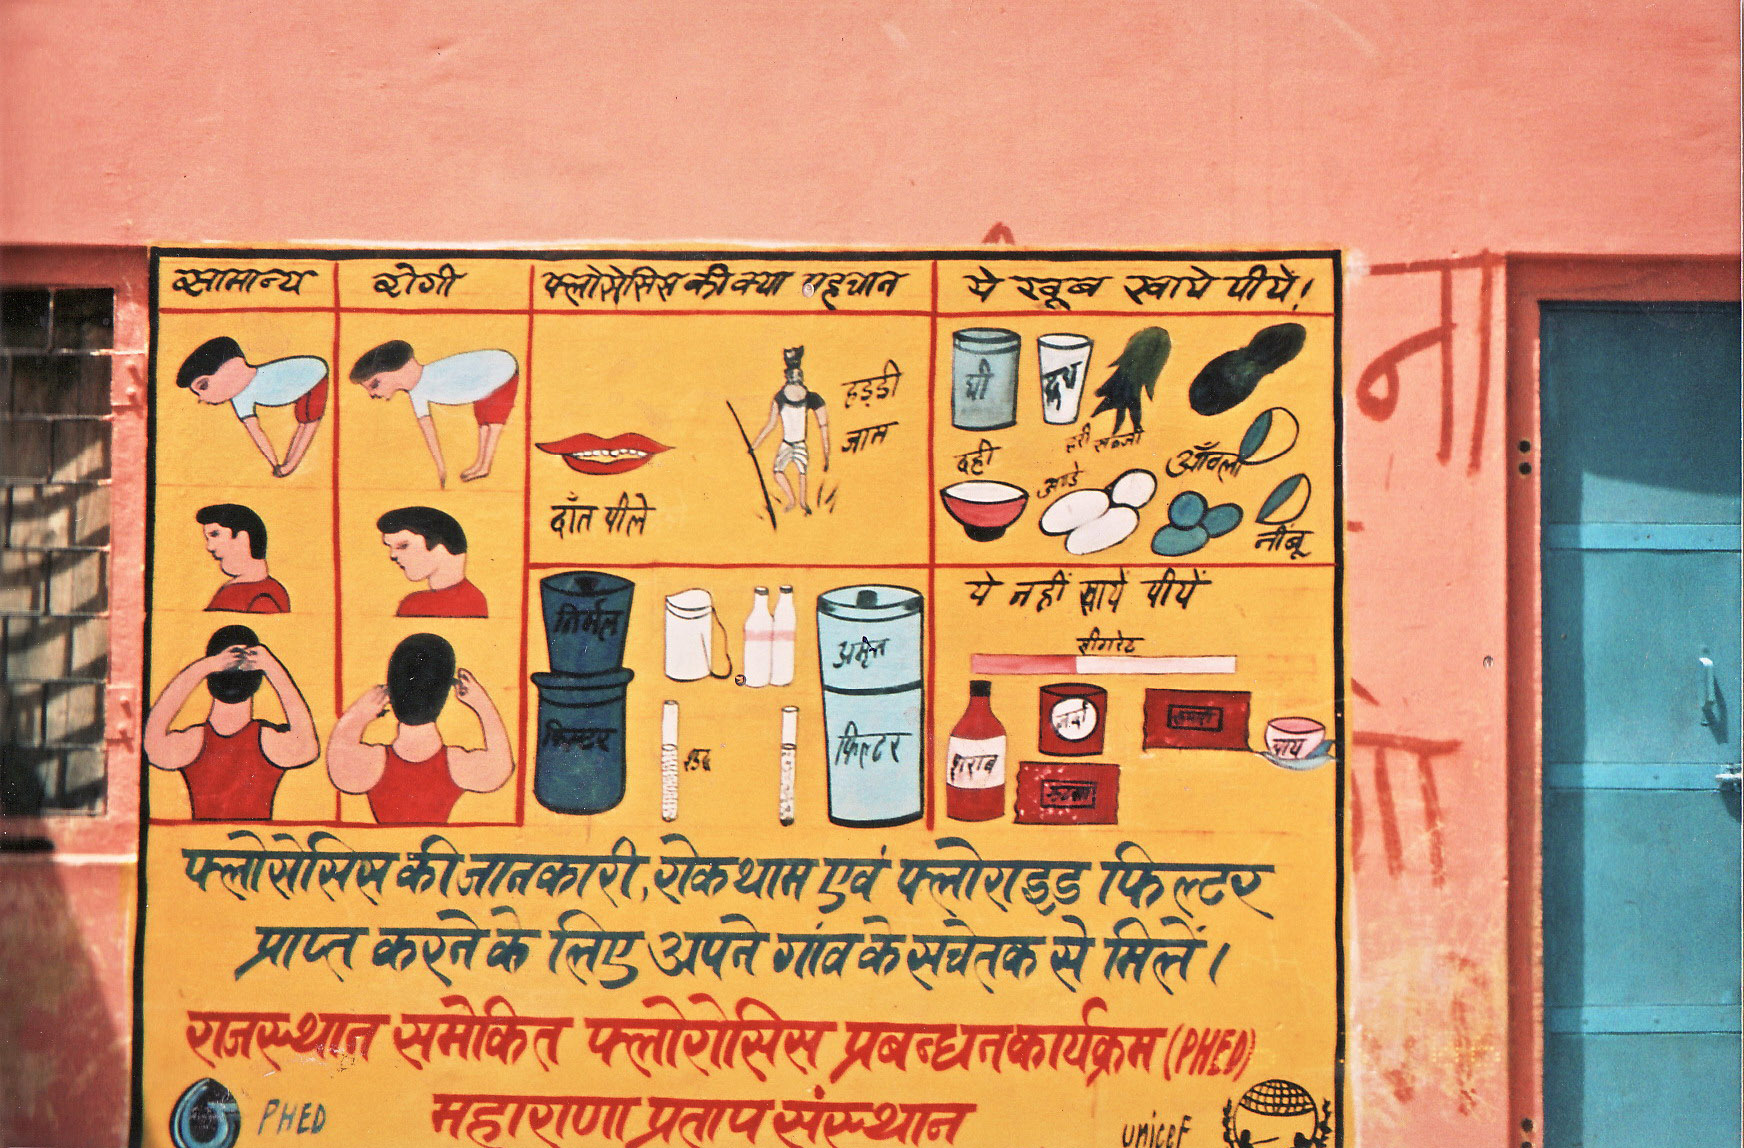 सामान्य
रोगी
फ्लोसेसिस की क्या पहचान
ये खूब खाये पीयें!
हड्डी
जाम
दाँत पीले
घी
दूध
हरी सब्जी
दही
अण्डे
आँवला
नींबू
निर्मल
फिल्टर
अमृत
फिल्टर
ये नहीं खायें पीयें
सीगरेट
शराब
जर्दा
चाय
गुटखा
फ्लोसोसिस की जानकारी, रोकथाम एवं फ्लोराइड फिल्टर
प्राप्त करने के लिए अपने गांव के सचेतक से मिलें।
राजस्थान समेकित फ्लोरोसिस प्रबन्धन कार्यक्रम (PHED)
PHED
महाराणा प्रताप संस्थान
unicef
ना